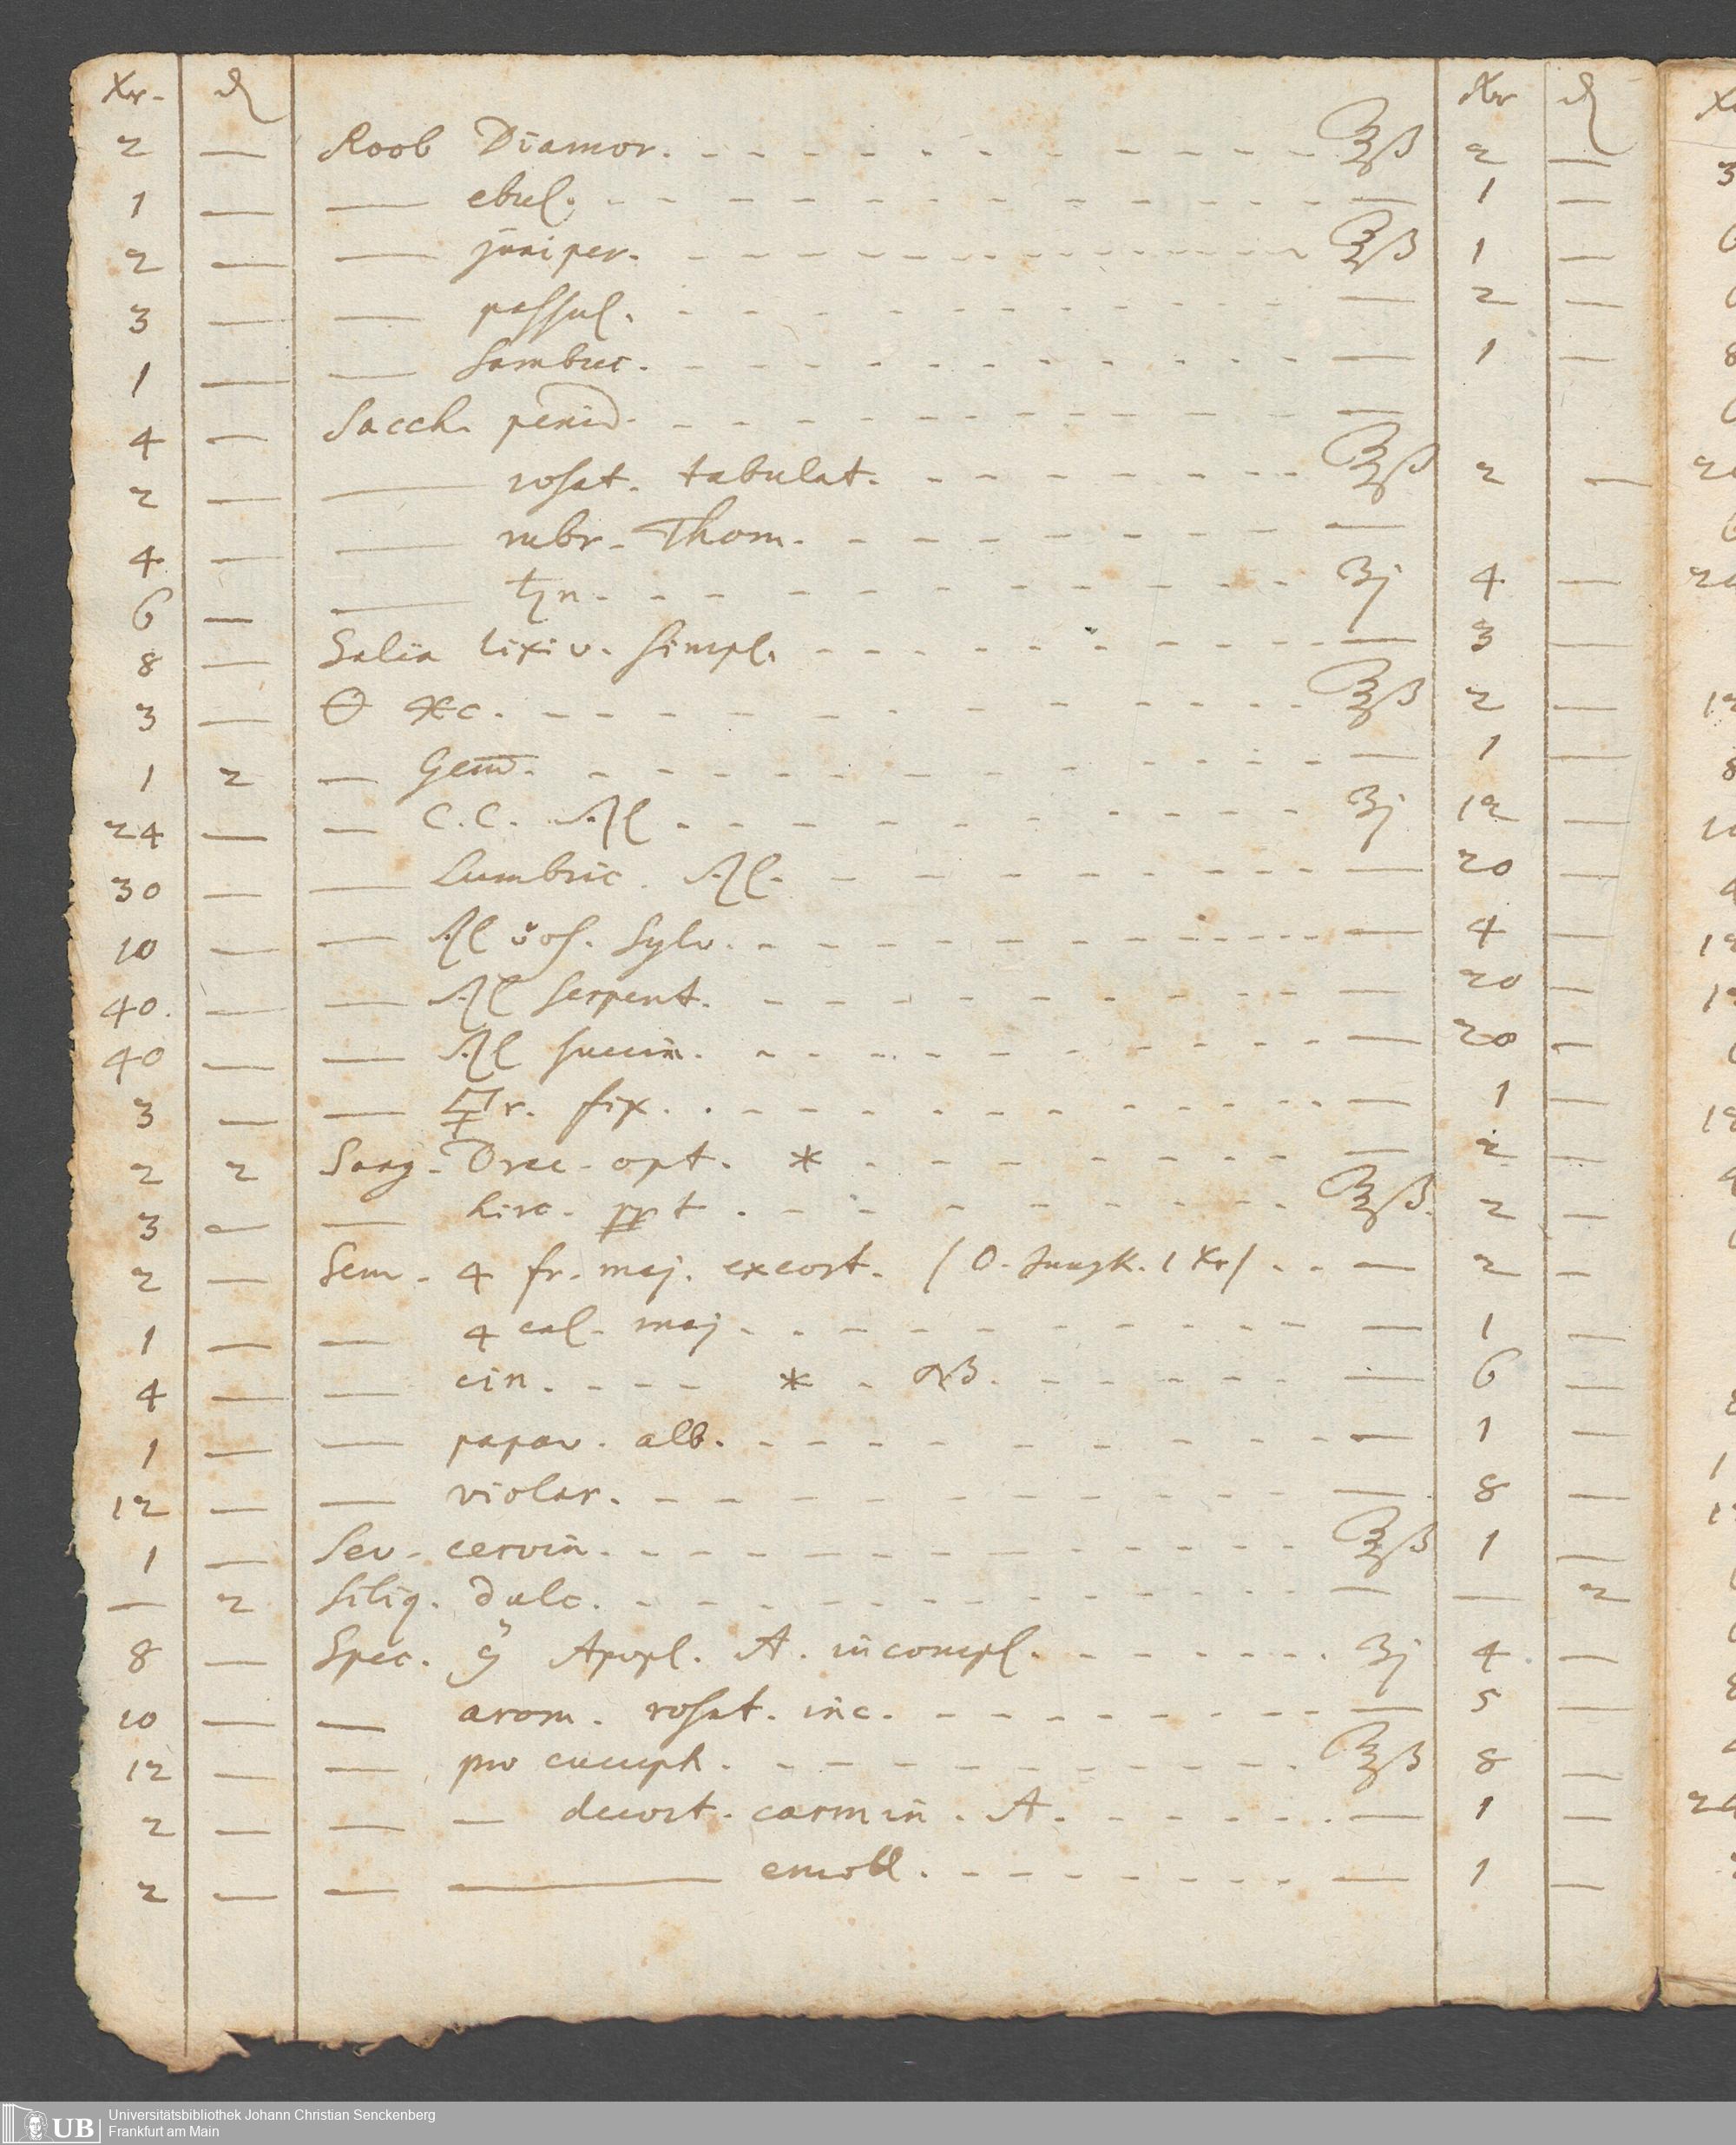 Xr. ₰ Xr ₰
2 — Roob Diamor. ℥ß 2 —
1 — — ebul. — 1 —
2 — — juniper. ℥ß 1 —
3 — — passul. — 2 —
1 — — Sambuc. — 1 —
4 — Sacch. penid. —
2 — — rosat. tabulat. ℥ß 2 —
4 — — rubr. Thom. —
6 — — ♄n. ʒj 4 —
8 — Salia lixiv. simpl. — 3 —
3 — 🜔 ✶c. ℥ß 2 —
1 2 — Gem. — 1 —
24 — — C.C. Vol ʒj 12 —
30 — — Lumbric. Vol. — 20 —
10 — — Vol ol. Sylv. — 4 —
40. — — Vol serpent. — 20 —
40 — — Vol succin. — 20 —
3 — — 🜿r. fix. — 1 —
2 2 Sang. Drac. opt. * — 2 —
3 — — hirc. ppt ℥ß. 2 —
2 — Sem. 4 fr. maj. excort. / O. Jungk. 1 Xr / — 2 —
1 — — 4 cal. maj. — 1 —
4 — — cin. * NB. — 6 —
1 — — papav. alb. — 1 —
12 — — violar. — 8 —
1 — Sev. cervin. ℥ß 1 —
— 2 Siliq. dulc. — — 2
8 — Spec. Apopl. A. incompl. ʒj 4. —
10 — — arom. rosat. inc. — 5 —
12 — — pro cucuph. ℥ß 8 —
2 — — — decort. carmin. A. — 1 —
2 — — — emoll. — 1 —
UB Universitätsbibliothek Johann Christian Senckenberg
Frankfurt am Main